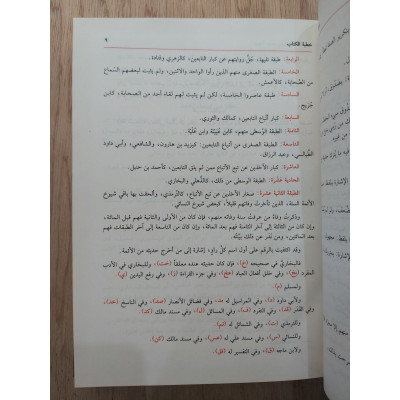 خطبة الكتاب ٩
الرابعة: طبقة تليها، جُلُّ روايتهم عن كبار التابعين، كالزهري وقتادة.
الخامسة: الطبقة الصغرى منهم، الذين رأوا الواحد والاثنين، ولم يثبت لبعضهم السماع
من الصحابة، كالأعمش.
السادسة: طبقة عاصروا الخامسة، لكن لم يثبت لهم لقاء أحد من الصحابة، كابن
جُريج.
السابعة: كبار أتباع التابعين، كمالك والثوري.
الثامنة: الطبقة الوسطى منهم، كابن عُيَيْنَة وابن عُلَيَّة.
التاسعة: الطبقة الصغرى من أتباع التابعين، كيزيد بن هارون، والشافعي، وأبي داود
الطيالسي، وعبد الرزاق.
العاشرة: كبار الآخذين عن تبع الأتباع ممن لم يلق التابعين، كأحمد بن حنبل.
الحادية عشرة: الطبقة الوسطى من ذلك، كالذُّهلي والبخاري.
الطبقة الثانية عشرة: صغار الآخذين عن تبع الأتباع، كالترمذي، وألحقت بها باقي شيوخ
الأئمة الستة، الذين تأخرتْ وفاتهم قليلاً، كبعض شيوخ النسائي.
وذكرتُ وفاة من عرفتُ سنة وفاته منهم، فإن كان من الأولى والثانية فهم قبل المائة،
وإن كان من الثالثة إلى آخر الثامنة فهم بعد المائة، وإن كان من التاسعة إلى آخر الطبقات فهم
بعد المائتين، ومن نَدَر عن ذلك بَيَّنْتُه.
وقد اكتفيت بالرقم على أول اسم كلِّ راوٍ، إشارة إلى من أخرج حديثه من الأئمة.
فالبخاري في صحيحه (خ)، فإن كان حديثه عنده معلقاً (خت)، وللبخاري في الأدب
المفرد (بخ)، وفي خلق أفعال العباد (عخ)، وفي جزء القراءة (ر)، وفي رفع اليدين (ي).
ولمسلم (م).
ولأبي داود (د)، وفي المراسيل له (مد)، وفي فضائل الأنصار (صد)، وفي الناسخ (خد)،
وفي القَدَر (قد)، وفي التفرد (ف)، وفي المسائل (ل)، وفي مسند مالك (كد).
وللترمذي (ت)، وفي الشمائل له (تم).
وللنسائي (س)، وفي مسند علي له (عس)، وفي مسند مالك (كن).
ولابن ماجه (ق)، وفي التفسير له (فق).